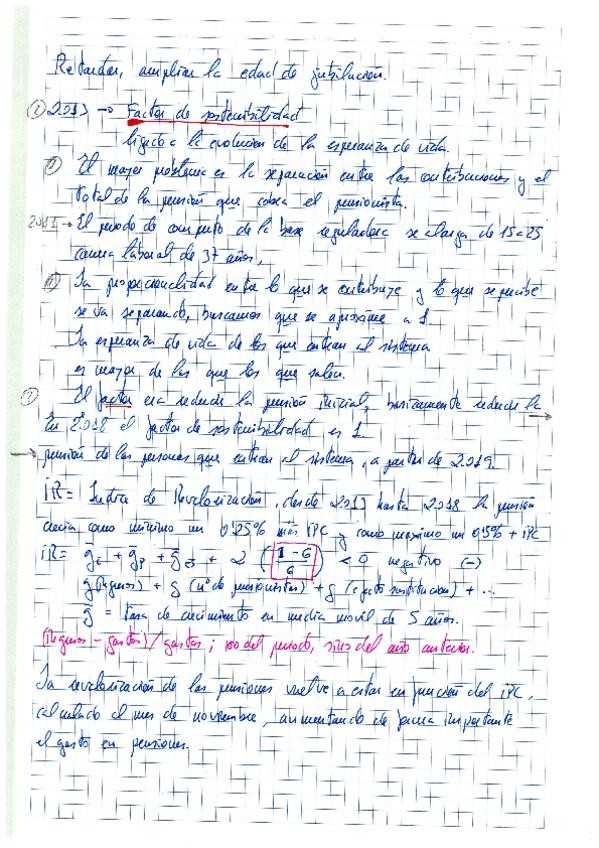 Retardar, ampliar la edad de jubilación.
① 2.013 → Factor de sostenibilidad
ligado a la evolución de la esperanza de vida.
El mayor problema es la separación entre las contribuciones y el
total de la pensión que cobra el pensionista.
2011 → El periodo de computo de la base reguladora se alarga de 15 a 25
carrera laboral de 37 años,
La proporcionalidad entre lo que se contribuye y lo que se percibe
se va separando, buscamos que se aproxime a 1.
La esperanza de vida de los que entran al sistema
es mayor de las que los que salen.
El factor era reducir la pensión inicial, basicamente reducir la
En 2.018 el factor de sostenibilidad es 1.
→ pensión de las personas que entran al sistema, a partir de 2.019.
IR = Indice de Revalorización, desde 2.013 hasta 2.018 la pensión
crecía como mínimo un 0'25% más IPC y como maximo un 0'5% + IPC
IR = g + g + g + 2 (I - G / G) < 0 negativo (-)
g (ingresos) + g (nº de pensionistas) + g (efecto sustitución) + ...
g = tasa de crecimiento en media movil de 5 años.
(Ingresos - gastos) / gastos ; no del periodo, sino del año anterior.
La revalorización de las pensiones vuelve a estar en función del IPC,
calculado el mes de noviembre, aumentando de forma importante
el gasto en pensiones.